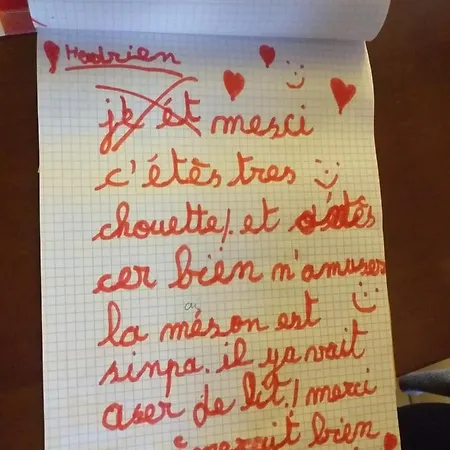 Hadrien
je ét mesci
c'étês tres
chouette! et
cer bien m'amuser
la méson est
sinpa. il ya vait
aser de lit! merci
bien